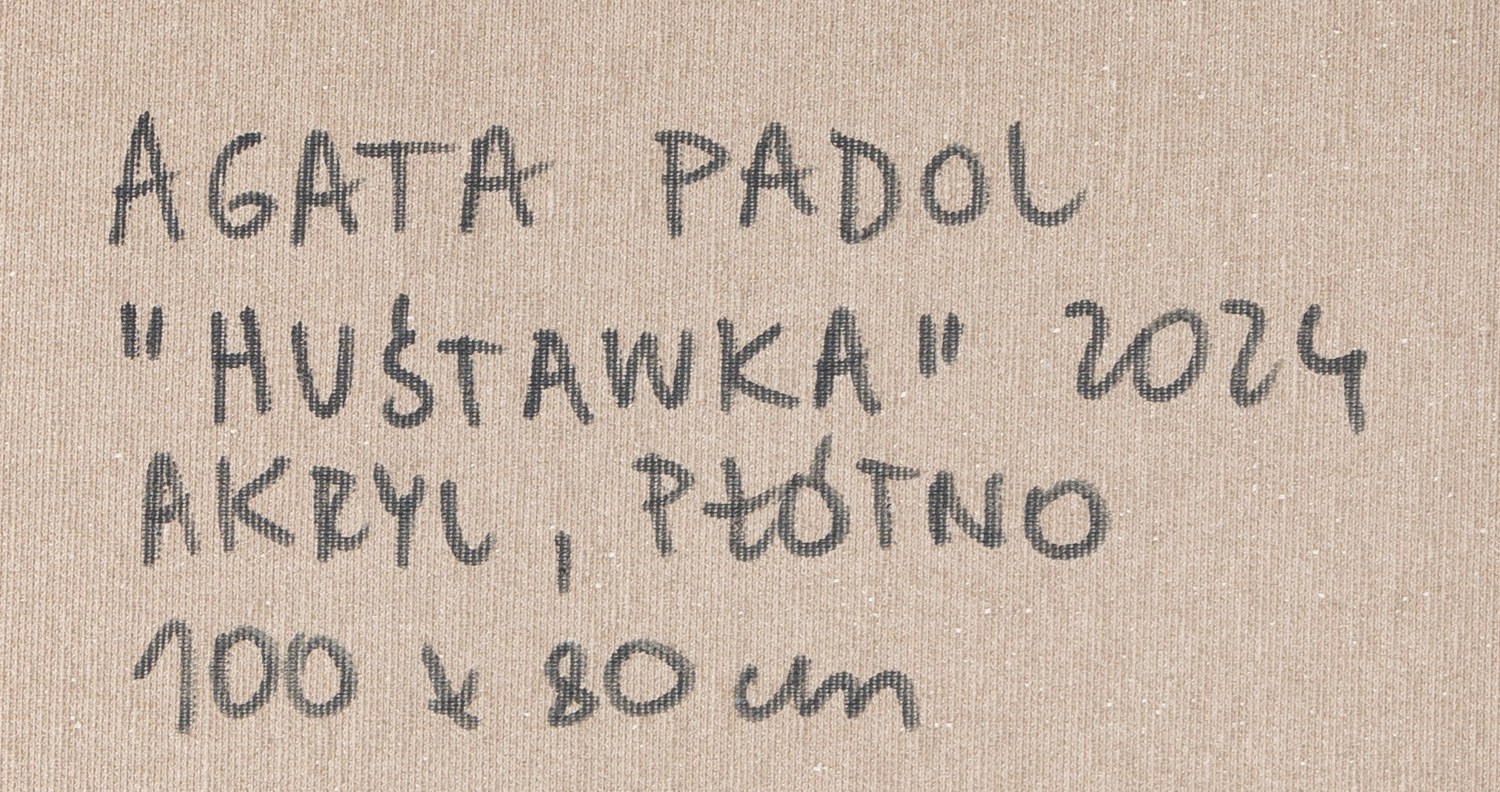 AGATA PADOL
"HUŚTAWKA" 2024
AKRYL, PŁÓTNO
100 x 80 cm